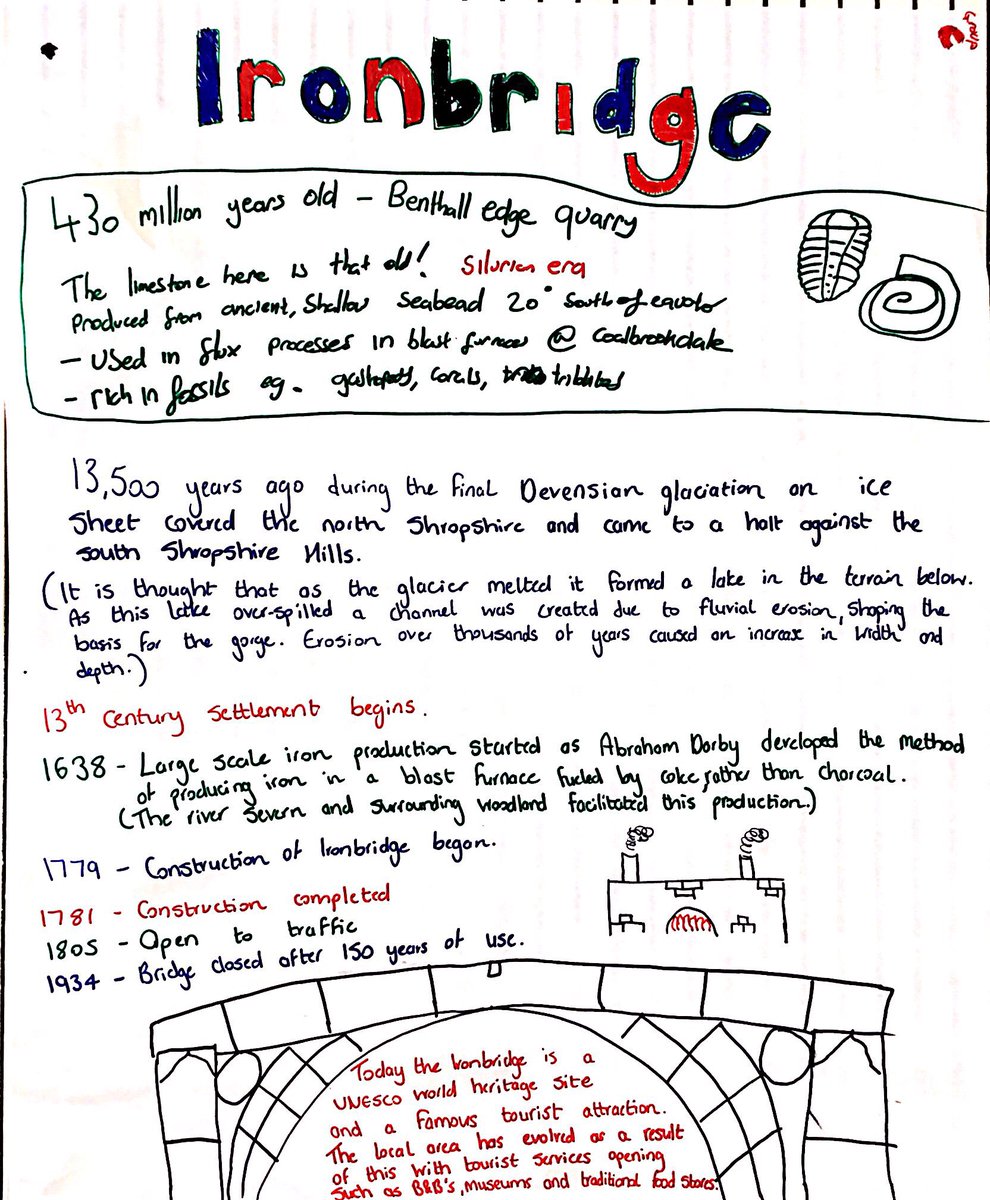 Group 2
Ironbridge
430 million years old - Benthall edge quarry
The limestone here is that old! Silurian era
Produced from ancient, shallow seabead 20° South of
- Used in flux processes in blast furnace @ Coalbrookdale
- rich in fossils eg. corals,
13,500 years ago during the final Devensian glaciation an ice
Sheet covered the north Shropshire and came to a halt against the
south Shropshire Hills.
(It is thought that as the glacier melted it formed a lake in the terrain below.
As this lake over-spilled a channel was created due to fluvial erosion, shaping the
basis for the gorge. Erosion over thousands of years caused an increase in width and
depth.)
13th Century settlement begins.
1638 - Large scale iron production started as Abraham Darby developed the method
of producing iron in a blast furnace fueled by coke, rather than charcoal.
(The river severn and surrounding woodland facilitated this production.)
1779 - Construction of Ironbridge began.
1781 - Construction completed
1805 - Open to traffic
1934 - Bridge closed after 150 years of use.
Today the Ironbridge is a
UNESCO world heritage site
and a famous tourist attraction.
The local area has evolved as a result
of this with tourist services opening
such as B&B's, museums and traditional food stores.